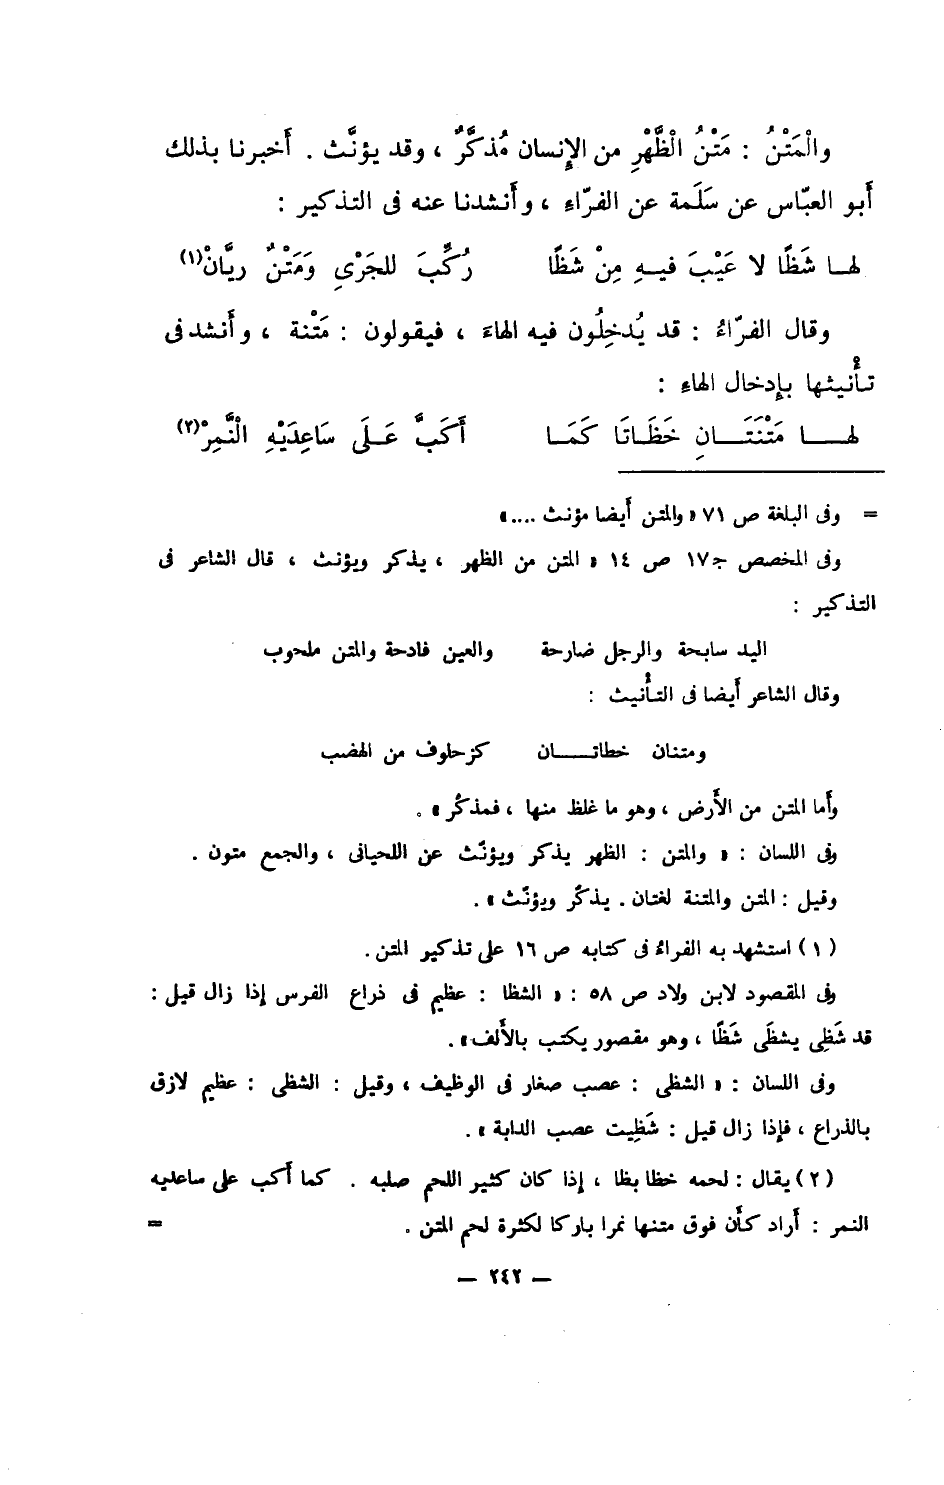 والْمَتْنُ : مَتْنُ الْظَّهْرِ من الإنسان مُذكَّرٌ ، وقد يؤنَّث . أَخبرنا بذلك
أَبو العبّاس عن سَلَمة عن الفرّاءِ ، وأَنشدنا عنه فى التذكير :
لهـا شَظًا لا عَيْبَ فيـهِ مِنْ شَظًا رُكِّبَ للجَرْىِ وَمَتْنٌ ريَّانْ(١)
وقال الفرّاءُ : قد يُدخِلُون فيه الهاءَ ، فيقولون : مَتْنة ، وأَنشد فى
تأْنيثها بإدخال الهاءِ :
لهـــا مَتْنَتَـــانِ خَظَـاتَا كَمَـا أَكَبَّ عَـلَى سَاعِدَيْهِ الْنَّمِرْ(٢)
= وفى البلغة ص ٧١ « والمتن أيضا مؤنث .... »
وفى المخصص ج١٧ ص ١٤ « المتن من الظهر ، يذكر ويؤنث ، قال الشاعر فى
التذكير :
اليد سابحة والرجل ضارحة والعين قادحة والمتن ملحوب
وقال الشاعر أيضا فى التأنيث :
ومتنان خطاتـــان كزحلوف من الهضب
وأما المتن من الأرض ، وهو ما غلظ منها ، فمذكر » .
وفى اللسان : « والمتن : الظهر يذكر ويؤنّث عن اللحيانى ، والجمع متون .
وقيل : المتن والمتنة لغتان . يذكّر ويؤنّث » .
(١) استشهد به الفراء فى كتابه ص ١٦ على تذكير المتن .
وفى المقصود لابن ولاد ص ٥٨ : « الشظا : عظيم فى ذراع الفرس إذا زال قيل :
قد شَظِى يشظَى شَظًا ، وهو مقصور يكتب بالألف » .
وفى اللسان : « الشظى : عصب صغار فى الوظيف ، وقيل : الشظى : عظيم لازق
بالذراع ، فإذا زال قيل : شَظِيت عصب الدابة » .
(٢) يقال : لحمه خظا بظا ، إذا كان كثير اللحم صلبه . كما أكب على ساعديه
النمر : أراد كأن فوق متنها نمرا باركا لكثرة لحم المتن . =
— ٢٤٢ —